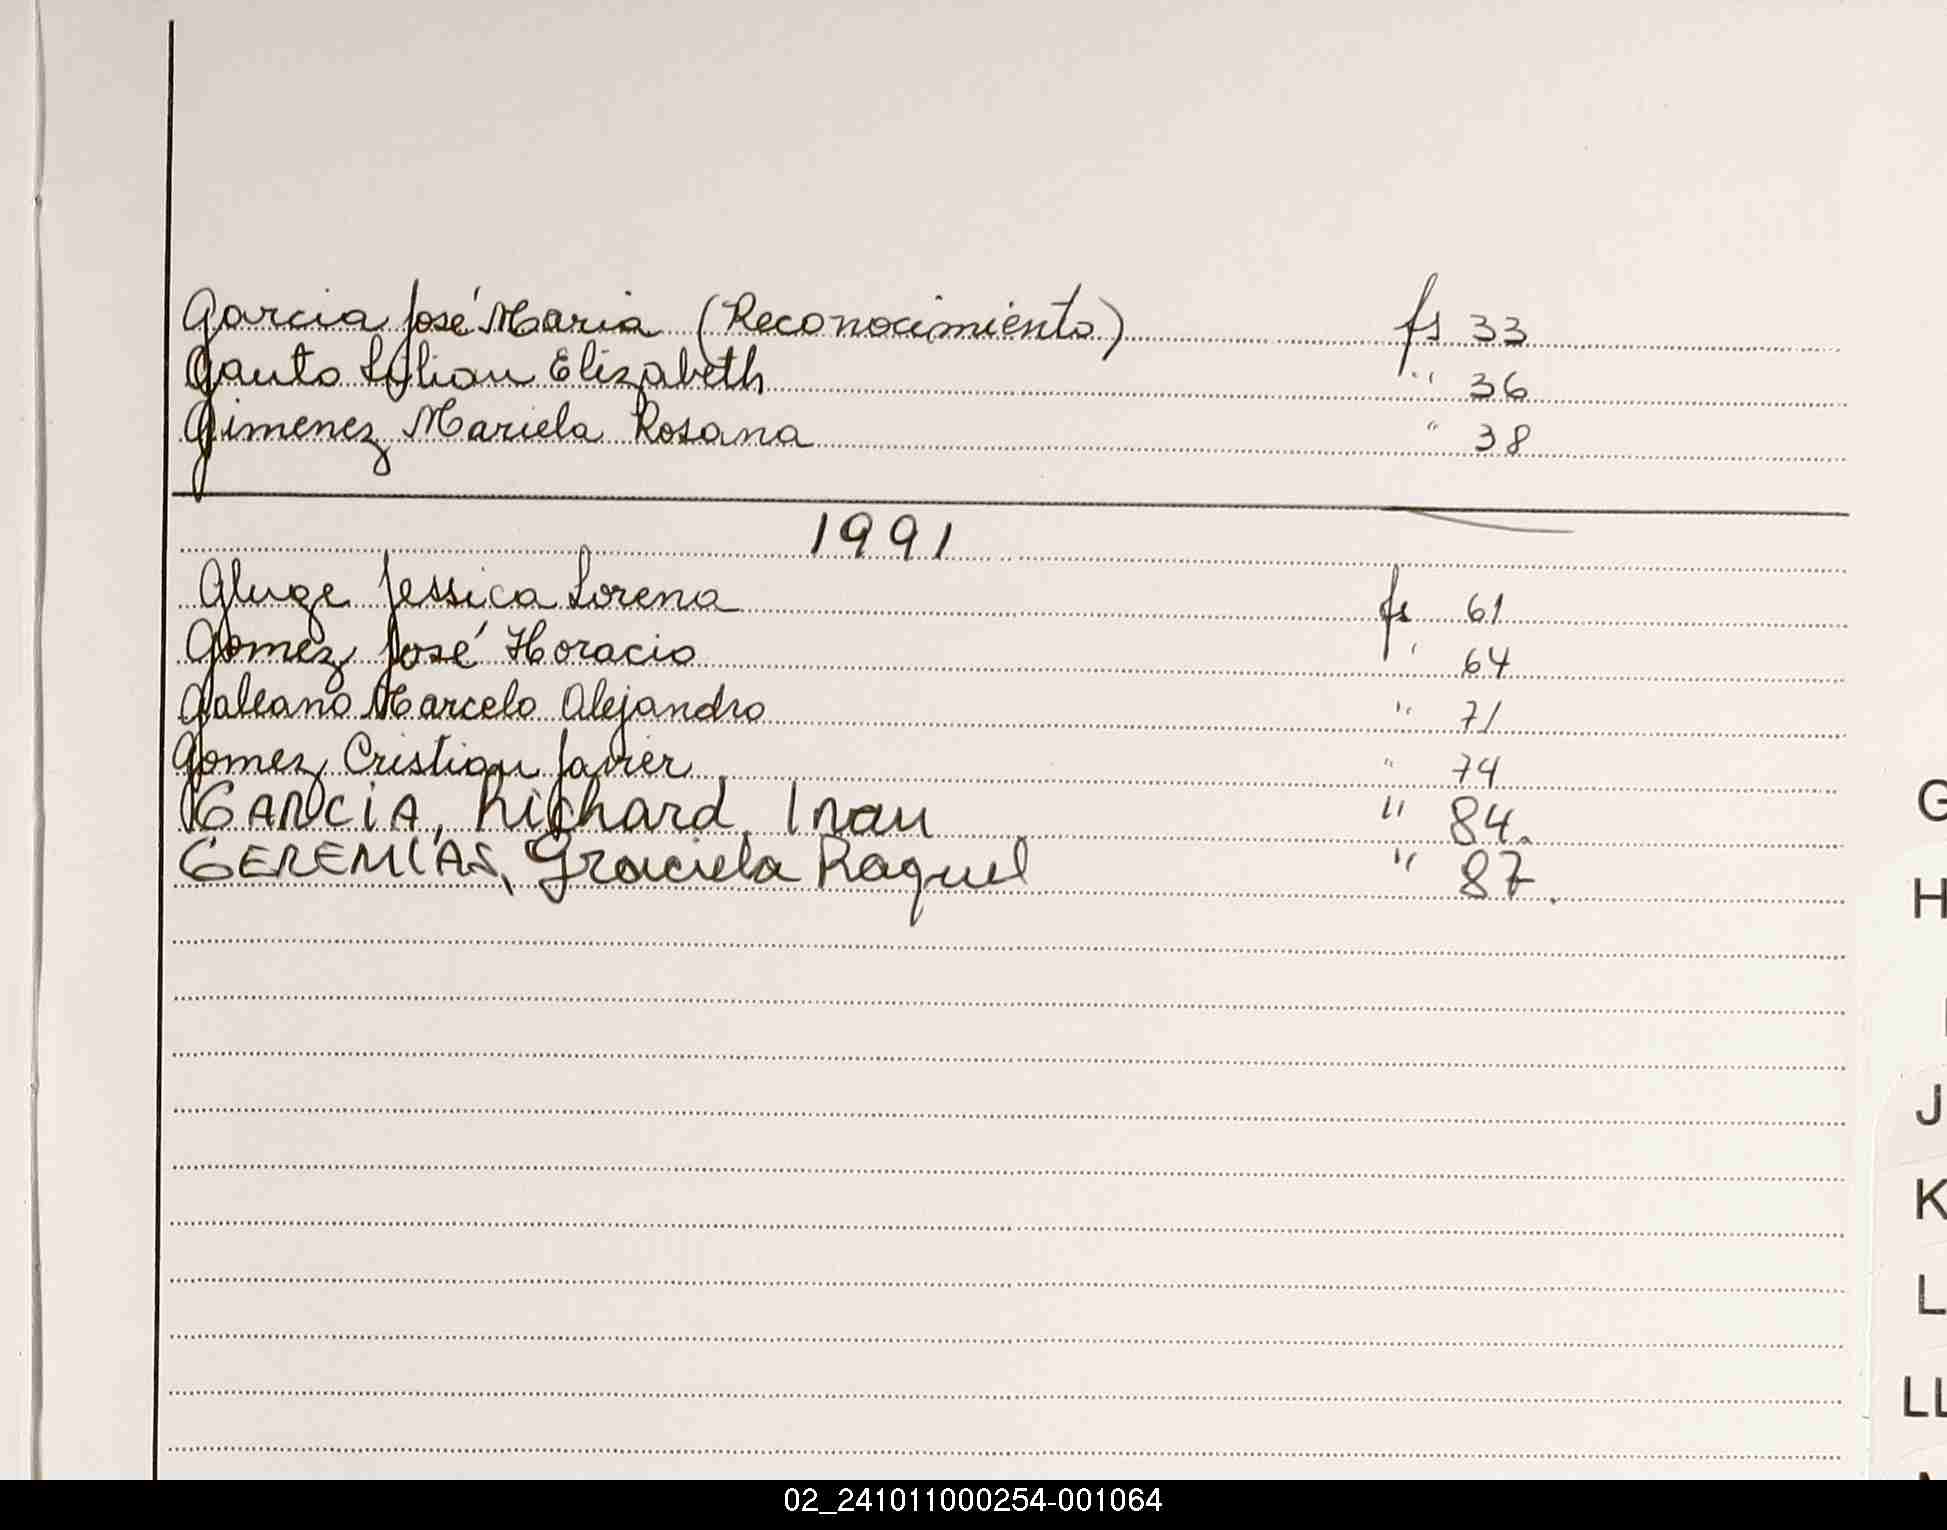 Garcia José Maria (Reconocimiento) fs 33
Gauto Lilian Elizabeth " 36
Gimenez Mariela Rosana " 38
1991
Gluge Jessica Lorena fs 61
Gomez José Horacio " 64
Galeano Marcelo Alejandro " 71
Gomez Cristian Javier " 74
GARCIA, Richard, Ivan " 84.
GEREMIAS, Graciela Raquel " 87.
G
H
J
K
L
LL
02_241011000254-001064